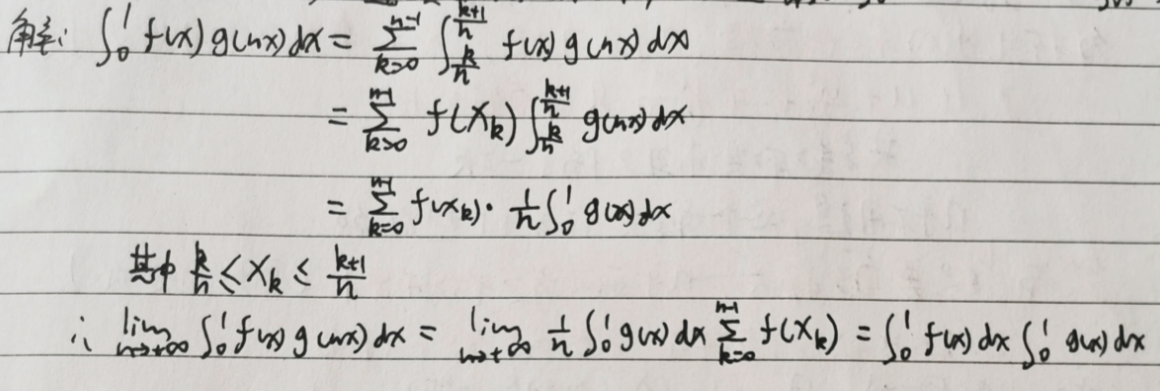 解: ∫₀¹ f(x) g(nx) dx = ∑_{k=0}^{n-1} ∫_{k/n}^{(k+1)/n} f(x) g(nx) dx
= ∑_{k=0}^{n-1} f(x_k) ∫_{k/n}^{(k+1)/n} g(nx) dx
= ∑_{k=0}^{n-1} f(x_k) · 1/n ∫₀¹ g(x) dx
其中 k/n ≤ x_k ≤ (k+1)/n
∴ lim_{n→+∞} ∫₀¹ f(x) g(nx) dx = lim_{n→+∞} 1/n ∫₀¹ g(x) dx ∑_{k=0}^{n-1} f(x_k) = ∫₀¹ f(x) dx ∫₀¹ g(x) dx